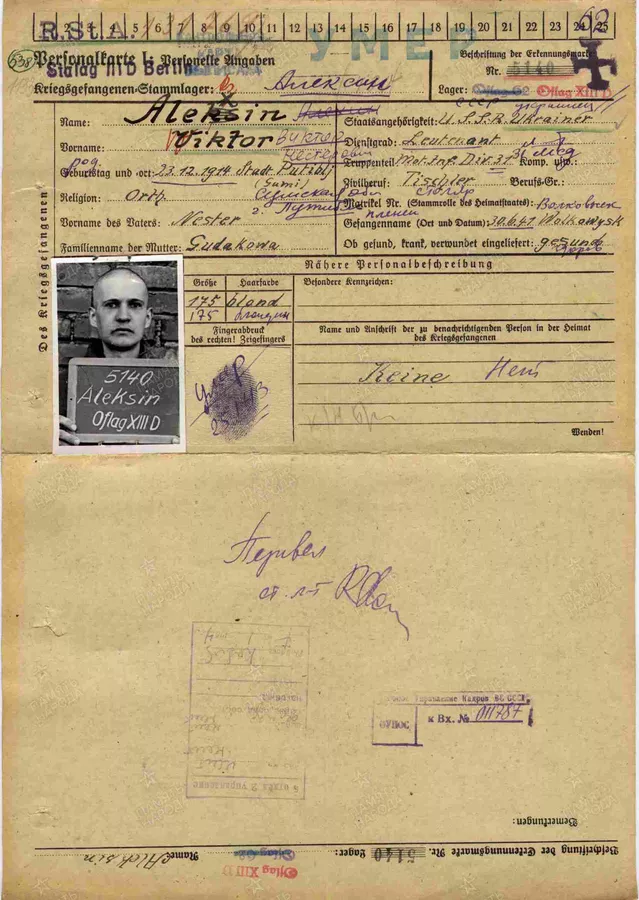 R.St.A.
1 2 3 4 5 6 7 8 9 10 11 12 13 14 15 16 17 18 19 20 21 22 23 24 25
УМЕР
Personalkarte I: Personelle Angaben
Beschriftung der Erkennungsmarke
Stalag III D Berlin
Nr. 5140
Kriegsgefangenen-Stammlager: Алексин
Lager: Oflag 62 Oflag XIII D
Des Kriegsgefangenen
Name: Aleksin Алексин
Staatsangehörigkeit: U.S.S.R. Ukrainer
СССР украинец
Vorname: Viktor Виктор
Нестерович
Dienstgrad: Leutnant л-т
Truppenteil: Mot.Inf.Div. Komp. usw.:
Geburtstag und -ort: 23.12.1914 Stadt Putivl
род.
Zivilberuf: Tischler Berufs-Gr.:
столяр
(Sumi)
Religion: Orth.
г. Путивль
Matrikel Nr. (Stammrolle des Heimatstaates): Волковыск
пленен
Vorname des Vaters: Nester
Gefangennahme (Ort und Datum): 30.6.41 Wolkowysk
Familienname der Mutter: Gudakowa
Ob gesund, krank, verwundet eingeliefert: gesund
здоров
Nähere Personalbeschreibung
Größe Haarfarbe
Besondere Kennzeichen:
175 blond
175 блондин
Fingerabdruck
des rechten! Zeigefingers
Name und Anschrift der zu benachrichtigenden Person in der Heimat
des Kriegsgefangenen
умер
Keine Нет
5140
Aleksin
Oflag XIII D
Wenden!
Перевел
ст. л-т
Управление Кадров ВС СССР
к Вх. № 011787
4 отдел 2 управление
Bemerkungen:
Beschriftung der Erkennungsmarke Nr. 5140 Lager: Oflag 62 Name: Aleksin
Oflag XIII D